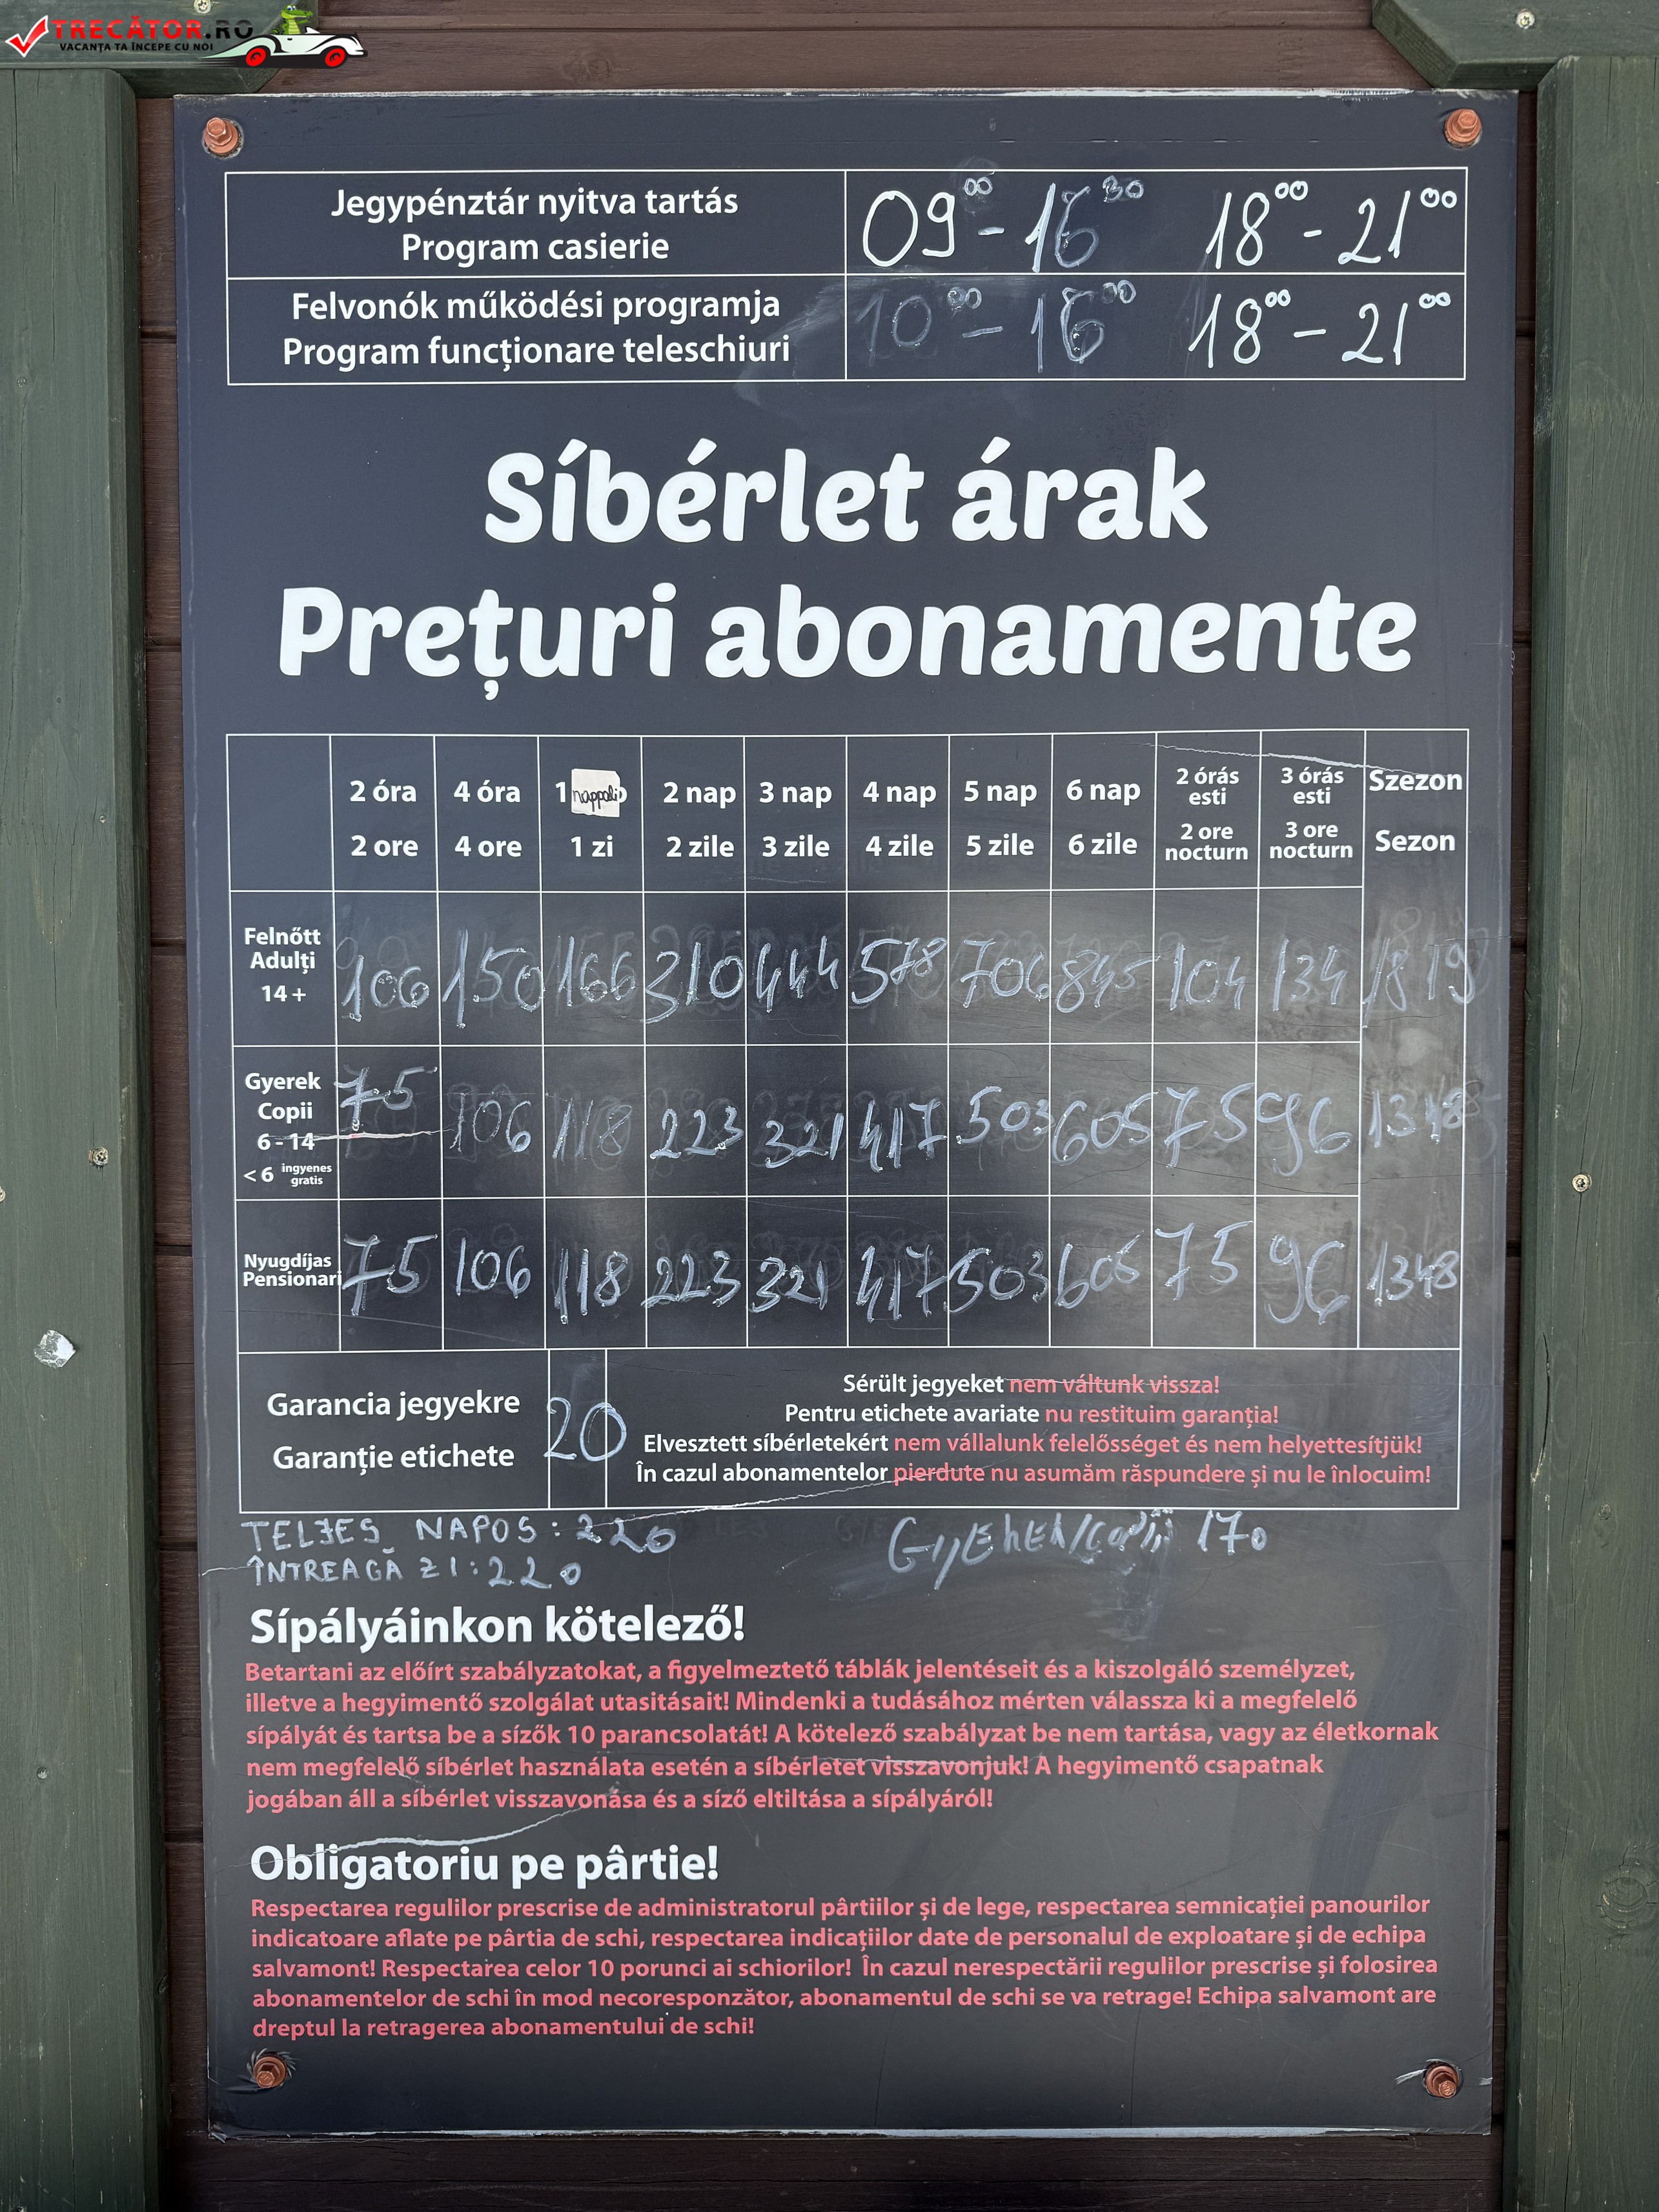 TRECĂTOR.RO
VACANȚA TA ÎNCEPE CU NOI
Jegypénztár nyitva tartás
Program casierie
09⁰⁰ - 16³⁰ 18⁰⁰ - 21⁰⁰
Felvonók működési programja
Program funcționare teleschiuri
10⁰⁰ - 16⁰⁰ 18⁰⁰ - 21⁰⁰
Síbérlet árak
Prețuri abonamente
2 óra 4 óra 1 nappali 2 nap 3 nap 4 nap 5 nap 6 nap 2 órás esti 3 órás esti Szezon
2 ore 4 ore 1 zi 2 zile 3 zile 4 zile 5 zile 6 zile 2 ore nocturn 3 ore nocturn Sezon
Felnőtt
Adulți
14 +
106 150 166 310 444 578 706 845 104 134 1819
Gyerek
Copii
6 - 14
< 6 ingyenes gratis
75 106 118 223 321 417 503 605 75 96 1348
Nyugdíjas
Pensionari
75 106 118 223 321 417 503 605 75 96 1348
Garancia jegyekre
Garanție etichete
20
Sérült jegyeket nem váltunk vissza!
Pentru etichete avariate nu restituim garanția!
Elvesztett síbérletekért nem vállalunk felelősséget és nem helyettesítjük!
În cazul abonamentelor pierdute nu asumăm răspundere și nu le înlocuim!
TELJES NAPOS: 220 Gyerek/Copii 170
ÎNTREAGĂ ZI: 220
Sípályáinkon kötelező!
Betartani az előírt szabályzatokat, a figyelmeztető táblák jelentéseit és a kiszolgáló személyzet,
illetve a hegyimentő szolgálat utasitásait! Mindenki a tudásához mérten válassza ki a megfelelő
sípályát és tartsa be a sízők 10 parancsolatát! A kötelező szabályzat be nem tartása, vagy az életkornak
nem megfelelő síbérlet használata esetén a síbérletet visszavonjuk! A hegyimentő csapatnak
jogában áll a síbérlet visszavonása és a síző eltiltása a sípályáról!
Obligatoriu pe pârtie!
Respectarea regulilor prescrise de administratorul pârtiilor și de lege, respectarea semnicației panourilor
indicatoare aflate pe pârtia de schi, respectarea indicațiilor date de personalul de exploatare și de echipa
salvamont! Respectarea celor 10 porunci ai schiorilor! În cazul nerespectării regulilor prescrise și folosirea
abonamentelor de schi în mod necoresponzător, abonamentul de schi se va retrage! Echipa salvamont are
dreptul la retragerea abonamentului de schi!